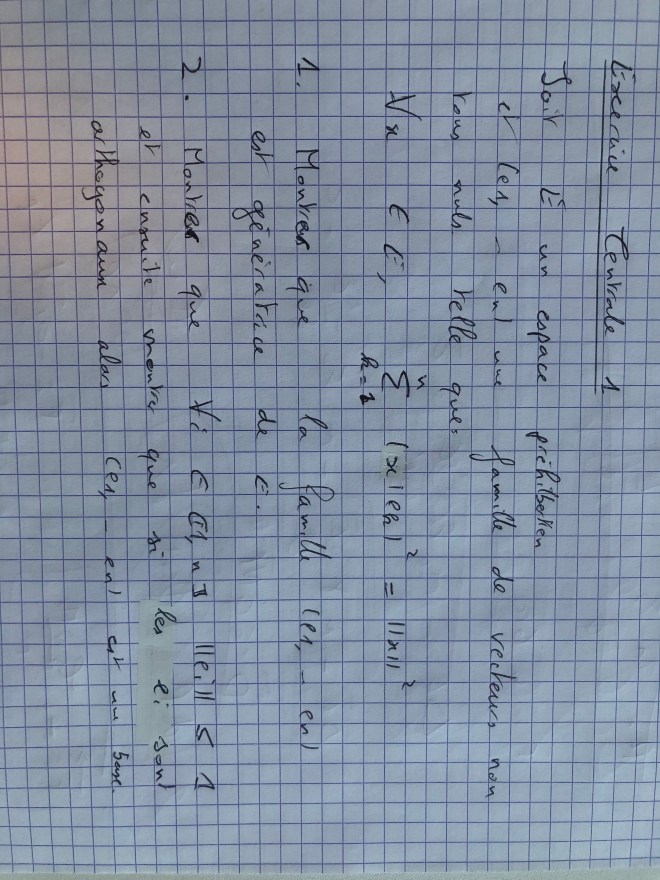 Exercice Centrale 1
Soit E un espace préhilbertien
et (e1, - en) une famille de vecteurs non
tous nuls telle que:
∀x ∈ E, n∑k=1 (x|ek)² = ||x||²
1. Montrer que la famille (e1, - en)
est génératrice de E.
2. Montrer que ∀i ∈ [[1,n]] ||ei|| ≤ 1
et ensuite montrer que si les ei sont
orthogonaux alors (e1, - en) est une base.